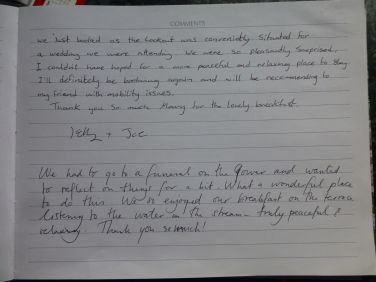 COMMENTS
we just booked as the Lookout was conveniently situated for
a wedding we were attending. We were so pleasantly surprised,
I couldn't have hoped for a more peaceful and relaxing place to stay
I'll definitely be booking again and will be recommending to
my friend with mobility issues.
Thank you so much for the lovely breakfast.
+ Joe
We had to go to a funeral on the Gower and wanted
to reflect on things for a bit. What a wonderful place
to do this. We so enjoyed our breakfast on the terrace
listening to the water in the stream - truly peaceful &
relaxing. Thank you so much!